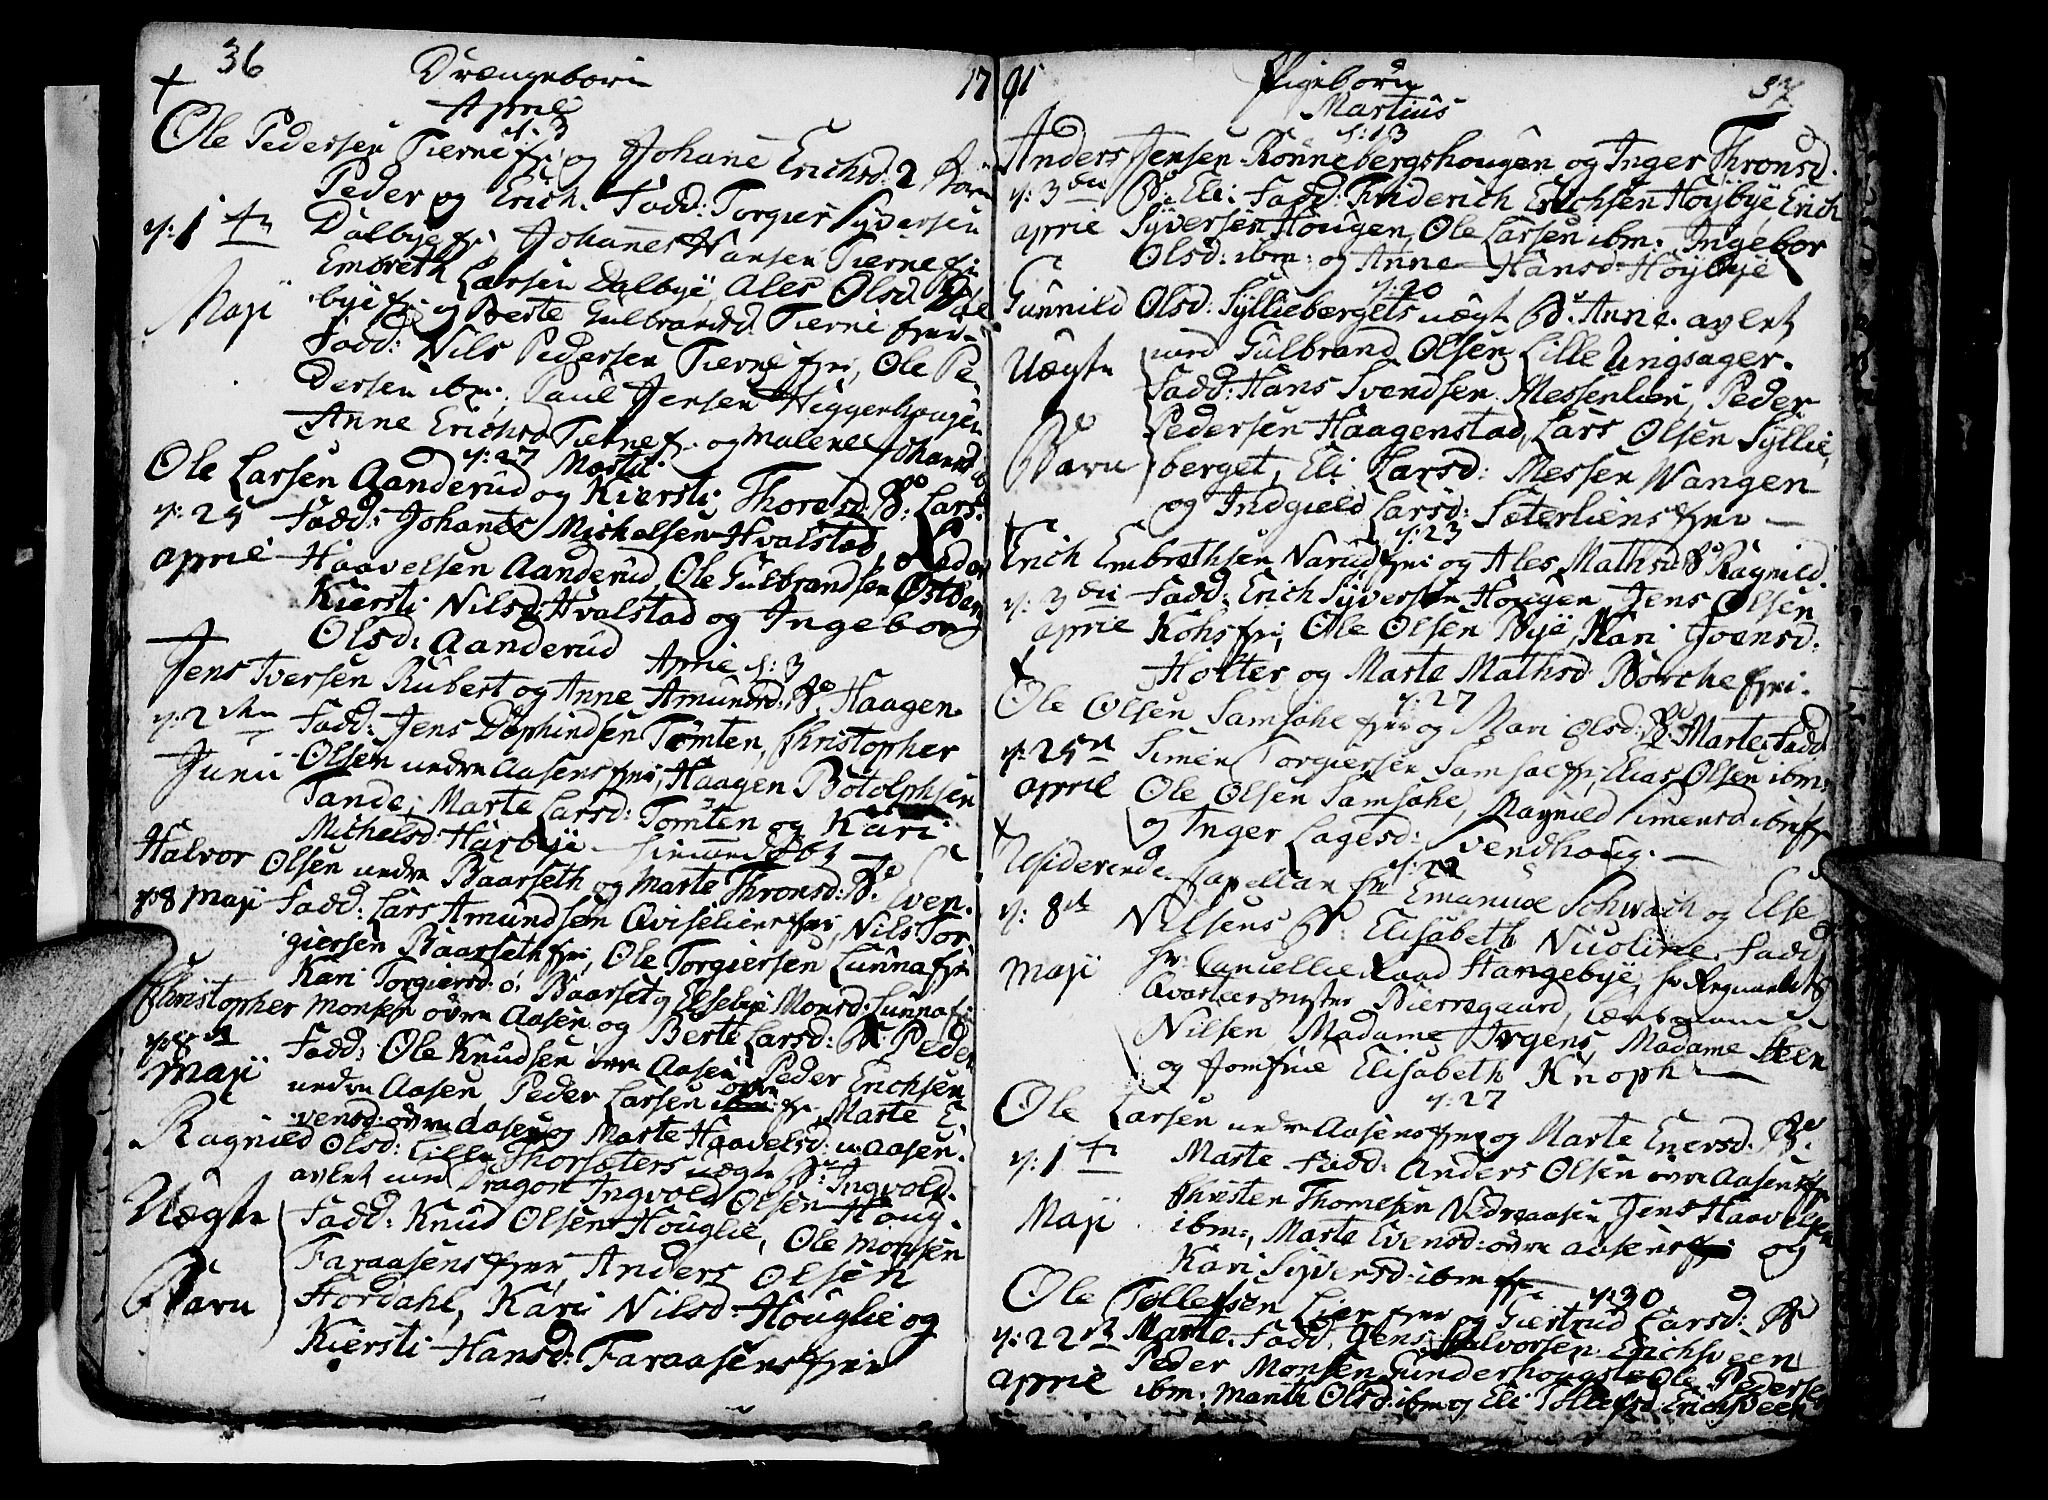 36
Drængebørn
17
April
d: 3
Ole Pedersen Tierne fri og Johane Erichsd: 2 Børn
Peder og Erich. Fadd: Torgier Syversen
d: 1te Dalbye fri Johannes Hansen Tierne fri
Embreth Larsen Dalbye, Ales Olsd
Maji bye fri og Berte Gulbrandsd Tierne frie
Fadd: Nils Pedersen Tierne fri, Ole Pe-
dersen ibm: Paul Jensen Higgenhougen
Anne Erichsd Tierne fr: og Malene Johannsd
d: 27 Martii
Ole Larsen Aanderud og Kiersti Thoresd: B: Lars.
d: 25 Fadd: Johannes Michelsen Hvalstad, Peder
April Haavelsen Aanderud, Ole Gulbrandsen Østbye
Kiersti Nilsd: Hvalstad og Ingebor
Olsd: Aanderud
April d: 3
Jens Iversen Rubert og Anne Amundsd: B: Haagen
d: 2den Fadd: Jens Tomten, Christopher
Junii Olsen nedre Aasens fri, Haagen Botolphsen
Tande, Marte Larsd: Tomten og Kari
Michelsd Harbye
Halvor Olsen nedre Baarseth og Marte Thronsd: B: Even.
d: 8 Maji Fadd: Lars Amundsen Qviseliens fri, Nils Tor-
giersen Baarseth fri, Ole Torgiersen Lunna fri
Kari Torgiersd: o: Baarset og Elsebye Monsd: Lunna fr
Christopher Monsen øvre Aasen og Berte Larsd: B: Peder
d: 8de Fadd: Ole Knudsen øvre Aasen, Peder Erichsen
Maji nedre Aasen Peder Larsen øvre fr, Marte E-
vensd: øvre Aasen og Marte Haavelsd: n: Aasen.
Ragnild Olsd: Lille Thorsæters uægte B: Ingvold.
avlet med Dragon Ingvold Olsen Houg.
Uægte Fadd: Knud Olsen Houglie, Ole Monsen
Faraasens frie, Anders Olsen
Barn Hordahl, Kari Nilsd: Houglie og
Kiersti Hansd: Faraasens frie
91
Pigebørn
37
Martius
d: 13
Anders Jensen Rønnebergshougen og Inger Thronsd.
d: 3die B: Eli: Fadd: Friderich Erichsen Høybye Erich
April Syversen Hougen, Ole Larsen ibm: Ingebor
Olsd: ibm: og Anne Hansd: Høybye
d: 20
Gunnild Olsd: Syllebergets uægte B: Anne. avlet
Uægte med Gulbrand Olsen Lille Ungsager.
Fadd: Hans Svendsen Messenlien, Peder
Pedersen Haagenstad, Lars Olsen Syllie-
Barn berget, Eli Larsd: Messen Wangen
og Indgield Larsd: Sæterliens frie
d: 23
Erich Embrethsen Narud fri og Ales Mathsd B: Ragnild.
d: 3die Fadd: Erich Syversen Hougen Jens Olsen
April Kohs fri, Ole Olsen Bye, Kari Joensd:
Holter og Marte Mathsd: Børche fri.
d: 27
Ole Olsen Samsøhe frie og Mari Olsd: B: Marte. Fadd
d: 25de Simen Torgiersen Samsøe fr, Elias Olsen ibm:
April Ole Olsen Samsøhe, Ragnild Simensd ibm fr
og Inger Lagesd: Svendhoug.
Residerende Capellan Hr Emanuel Schwach og Else
d: 8de Nilsens B: Elisabeth Nicoline. Fadd
Maji Hr: Cancellie Raad Hangebye, Hr
Qvarteermester Bierregaard, Lænsmand
Nilsen Madame Irgens, Madame Steen
og Jomfrue Elisabeth Knoph
d: 27
Ole Larsen nedre Aasens frie og Marte Enersd: B:
d: 1te Marte. Fadd: Anders Olsen øvre Aasens fr
Christen Thomesen Nedreaasen, Jens Haavelsen
Maji ibm:, Marte Evensd: øvre Aasens fri og
Kari Syversd: ibm fr
d: 30
Ole Tollefsen Lier frie og Giertrud Larsd: B:
d: 22de Marte. Fadd. Jens Halvorsen Erichsveen
Peder Monsen Gunderhougstø Ole Pedersen
April ibm: Marte Olsd: ibm og Eli Tollefsd Erichsveen